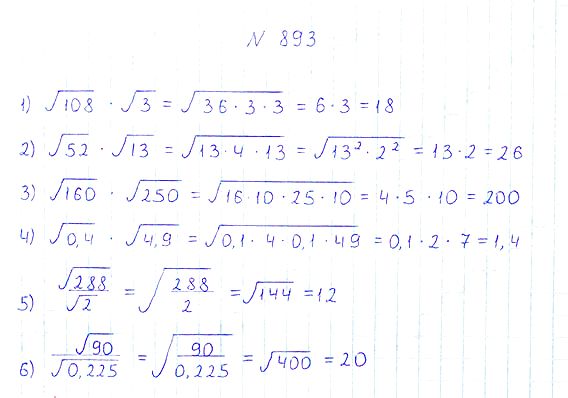 N 893
1) √108 · √3 = √36 · 3 · 3 = 6 · 3 = 18
2) √52 · √13 = √13 · 4 · 13 = √13² · 2² = 13 · 2 = 26
3) √160 · √250 = √16 · 10 · 25 · 10 = 4 · 5 · 10 = 200
4) √0,4 · √4,9 = √0,1 · 4 · 0,1 · 49 = 0,1 · 2 · 7 = 1,4
5) √288/√2 = √288/2 = √144 = 12
6) √90/√0,225 = √90/0,225 = √400 = 20